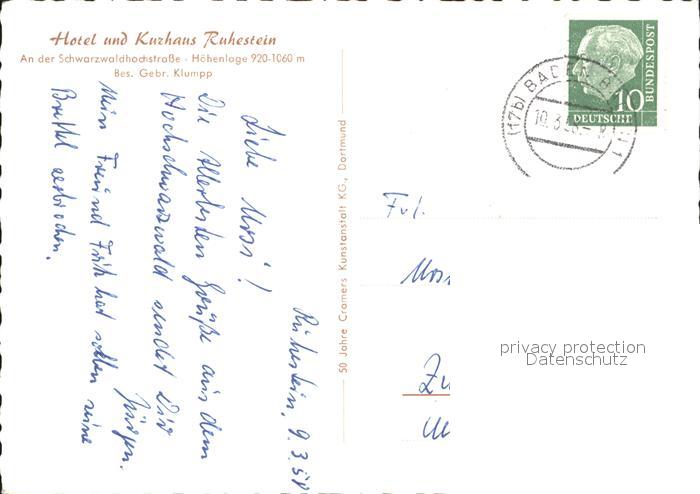 Hotel und Kurhaus Ruhestein
An der Schwarzwaldhochstraße · Höhenlage 920-1060 m
Bes. Gebr. Klumpp
Ruhestein, 9.3.58
Liebe Ursi!
Die Allerbesten Grüße aus dem
Hochschwarzwald sendet Dir
Jürgen.
Mein Freund Fritz hat sich seine
Brettel zerbrochen.
50 Jahre Cramers Kunstanstalt KG., Dortmund
(17b) BADEN-B
10.3.58.-
10
DEUTSCHE
BUNDESPOST
Frl.
privacy protection
Datenschutz